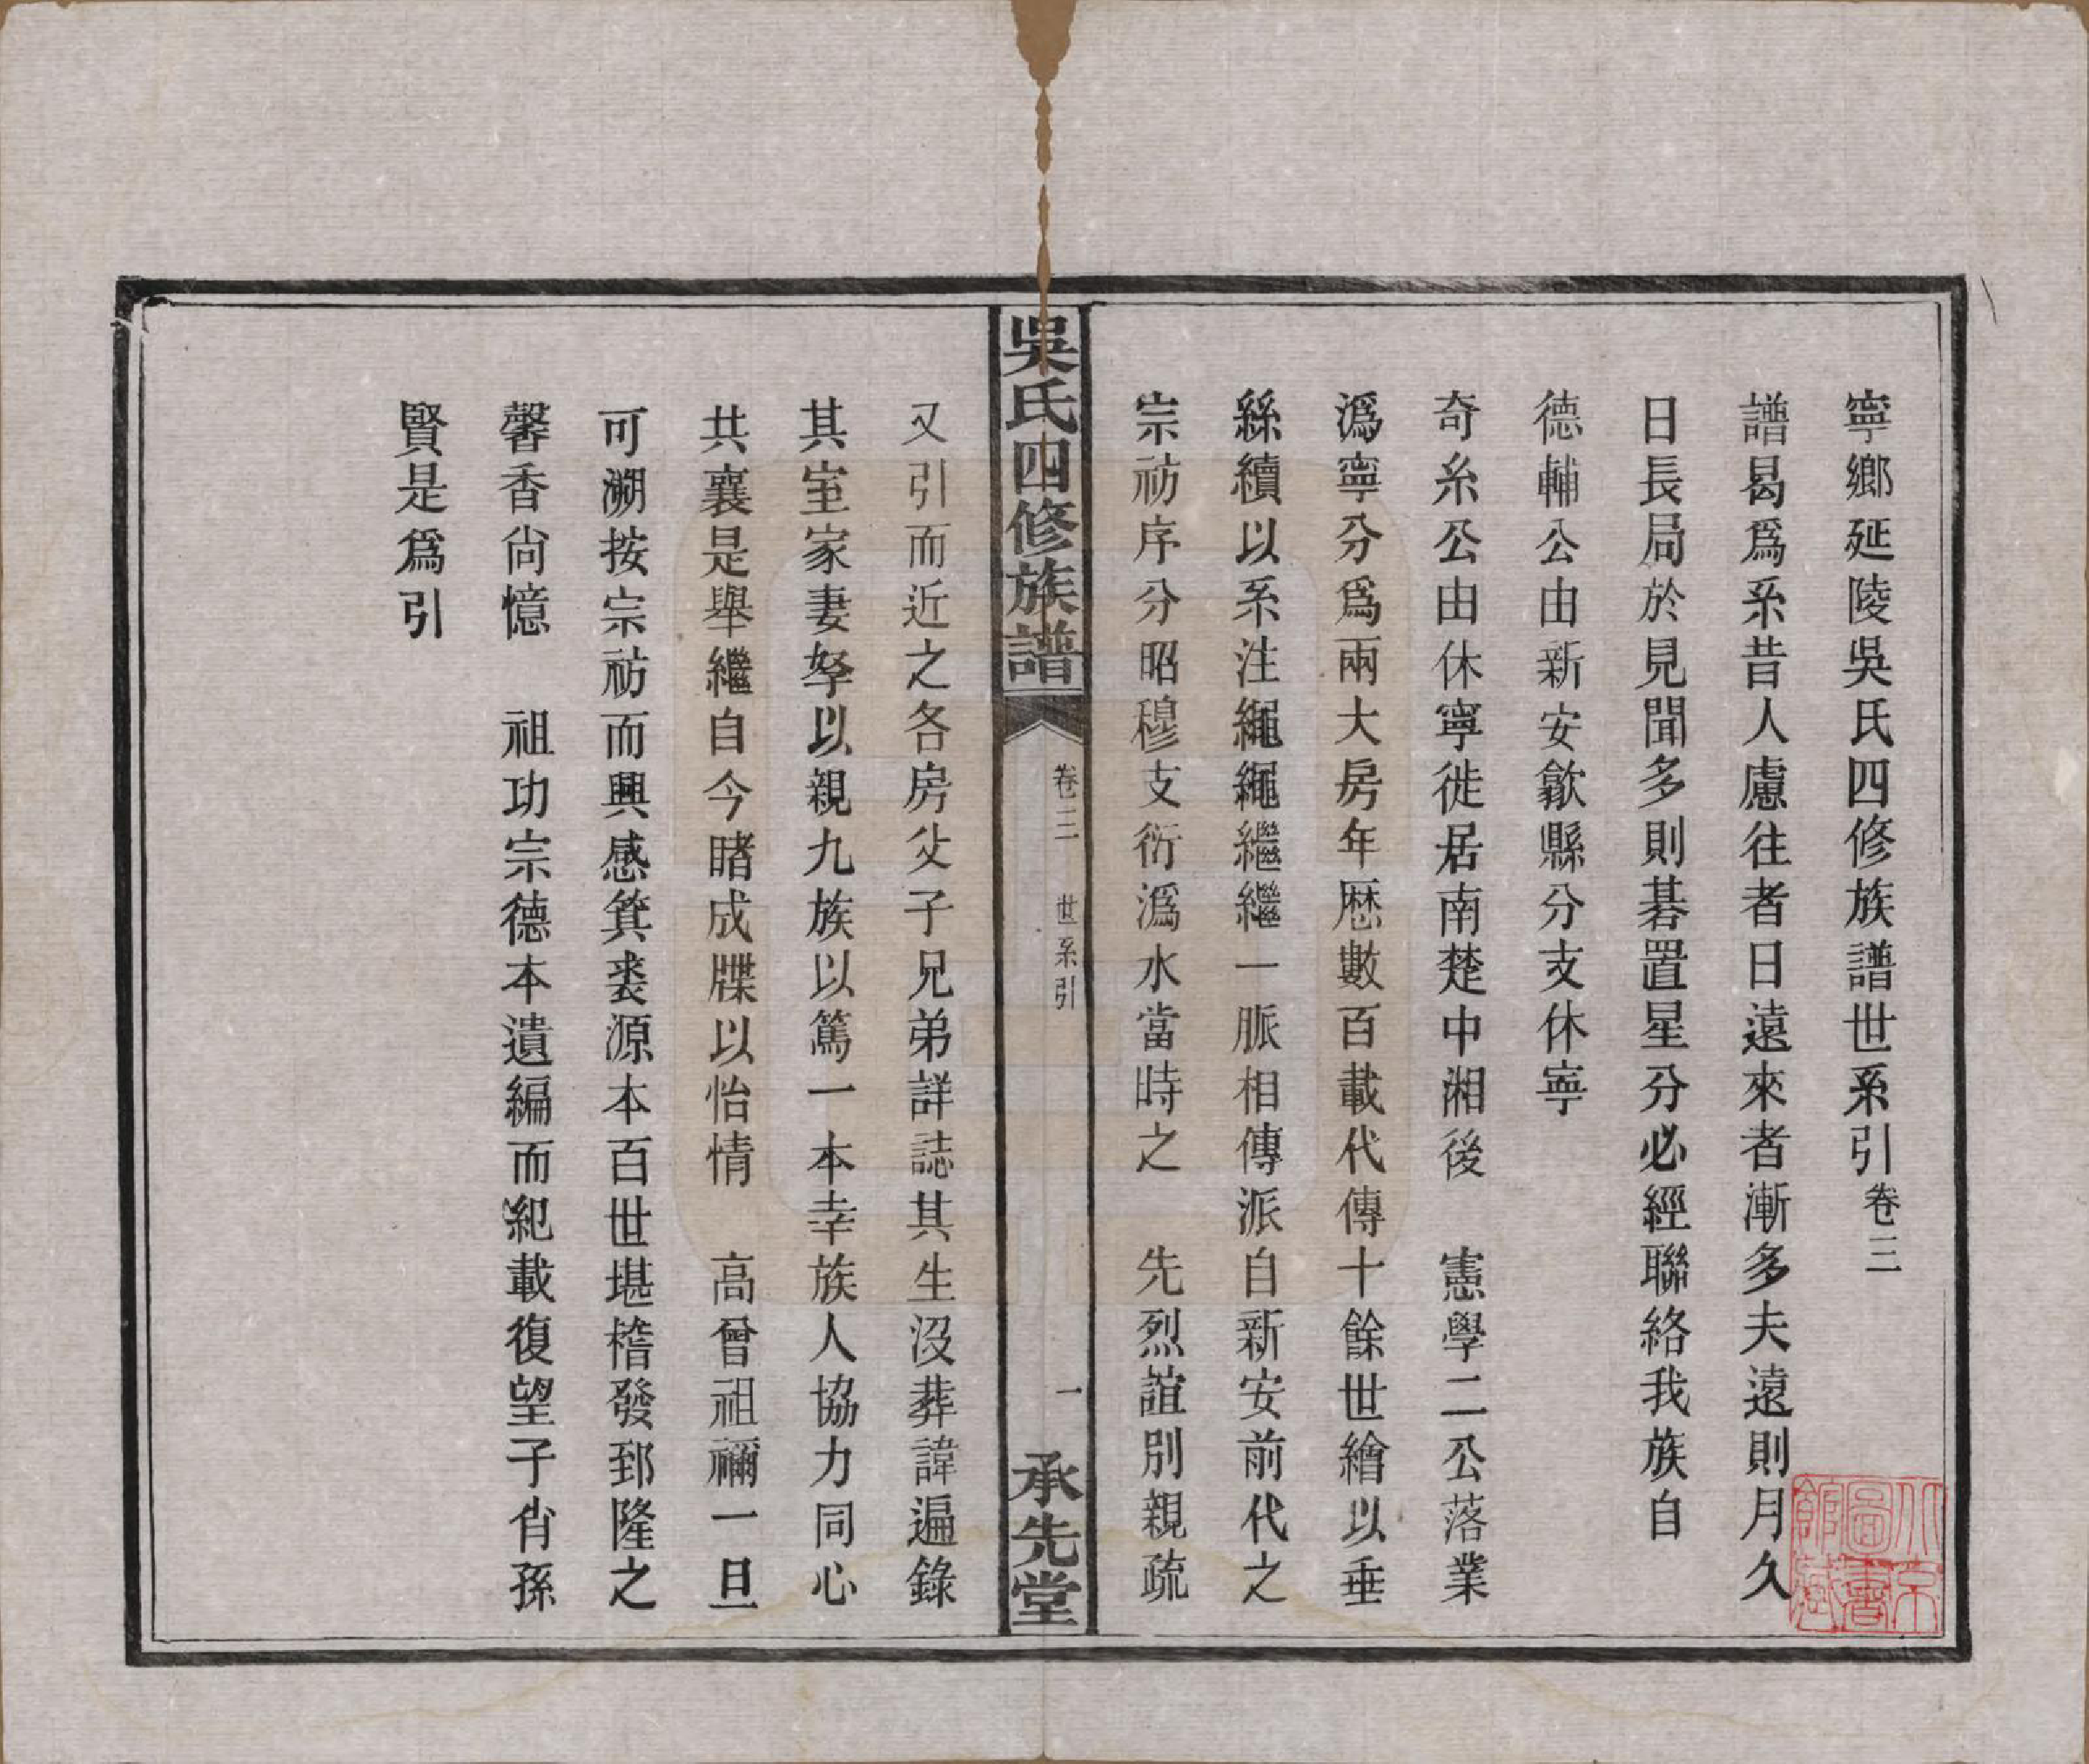 寧鄉延陵吳氏四修族譜世系引卷三
譜曷爲系昔人慮往者日遠來者漸多夫遠則月久
日長局於見聞多則碁置星分必經聯絡我族自
德輔公由新安歙縣分支休寧
奇糸公由休寧徙居南楚中湘後　憲學二公落業
潙寧分爲兩大房年歷數百載代傳十餘世繪以垂
絲續以系注繩繩繼繼一脈相傳派自新安前代之
宗祊序分昭穆支衍潙水當時之　先烈誼別親疏
吳氏四修族譜　卷三　世系引　一　承先堂
又引而近之各房父子兄弟詳誌其生沒葬諱遍錄
其室家妻孥以親九族以篤一本幸族人協力同心
共襄是舉繼自今睹成牒以怡情　高曾祖禰一旦
可溯按宗祊而興感箕裘源本百世堪稽發郅隆之
馨香尙憶　祖功宗德本遺編而紀載復望子肖孫
賢是爲引
北京圖書館藏